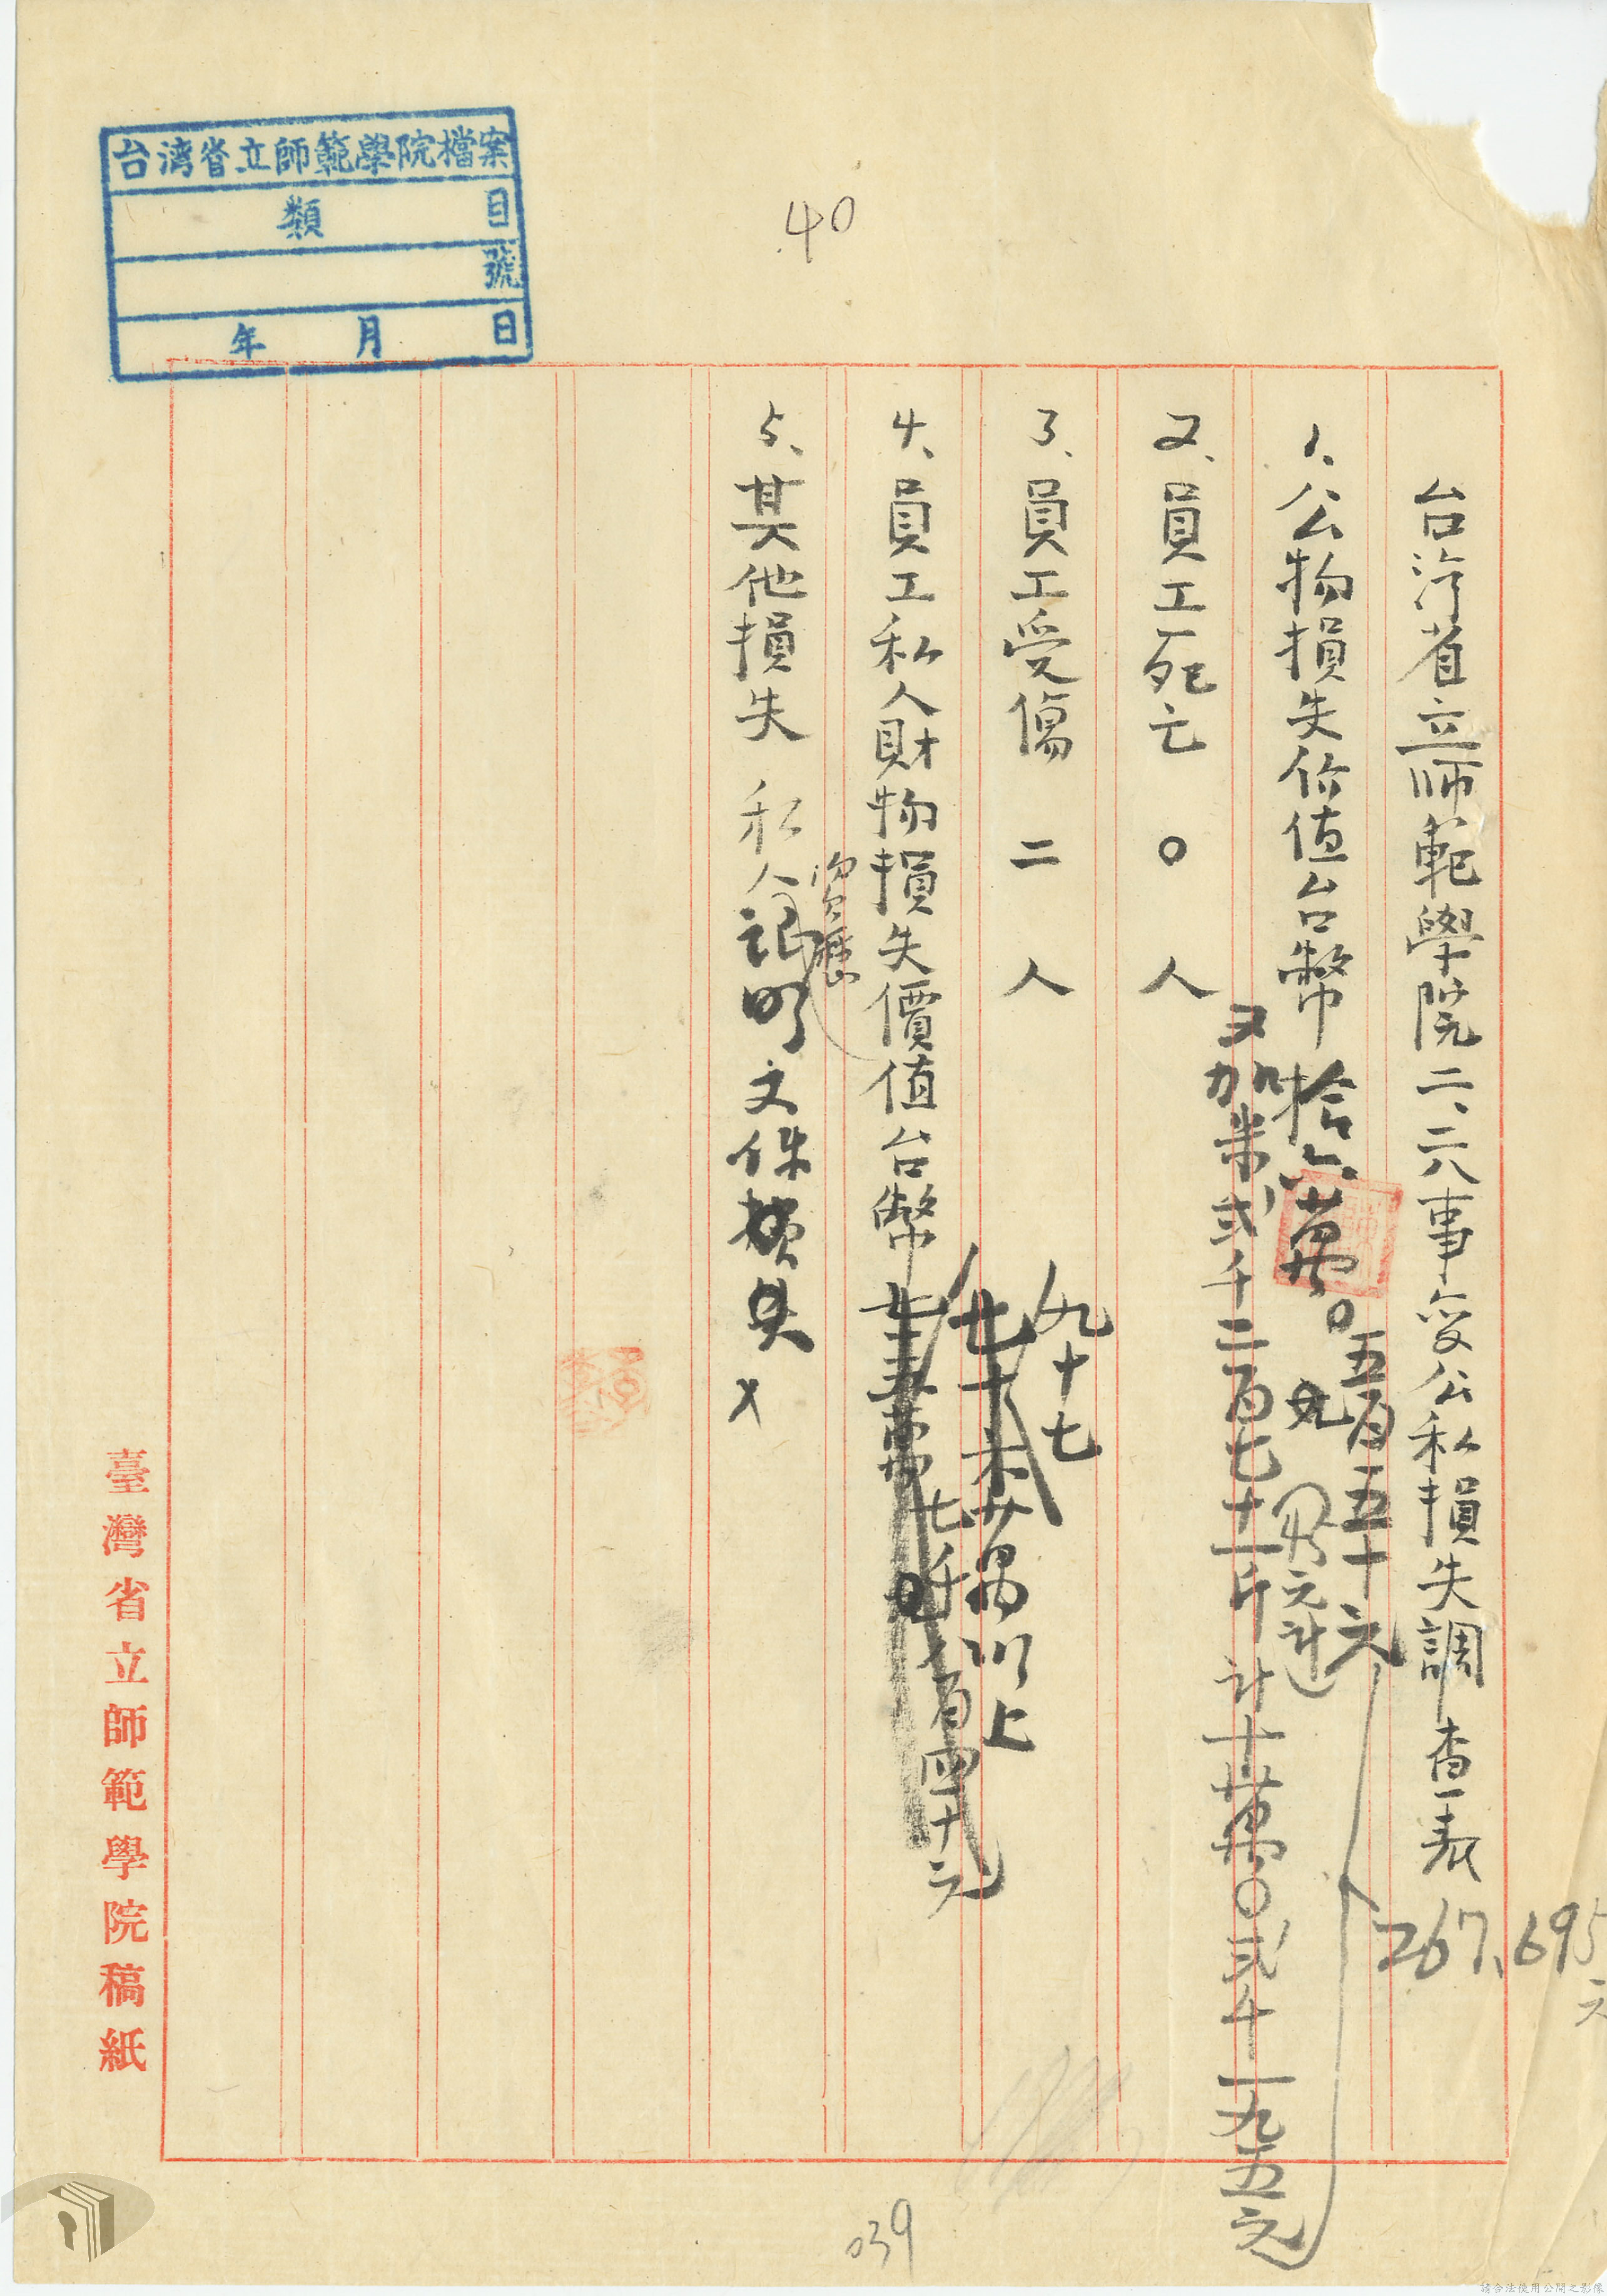 台湾省立師範學院檔案
類 目
號
年 月 日
40
台湾省立师範學院二、二八事变公私損失調查表
267,695元
1、公物損失价值台幣拾六萬
五百五十元
又加米弍千二百七十一斤 計十萬〇弍千一九五元
元計
2、員工死亡 〇 人
3、員工受傷 二 人
4、員工私人財物損失價值台幣
九十七
萬以上
七千八百四十元
5、其他損失 私人證明文件損失
資歷
臺灣省立師範學院稿紙
039
請合法使用公開之影像